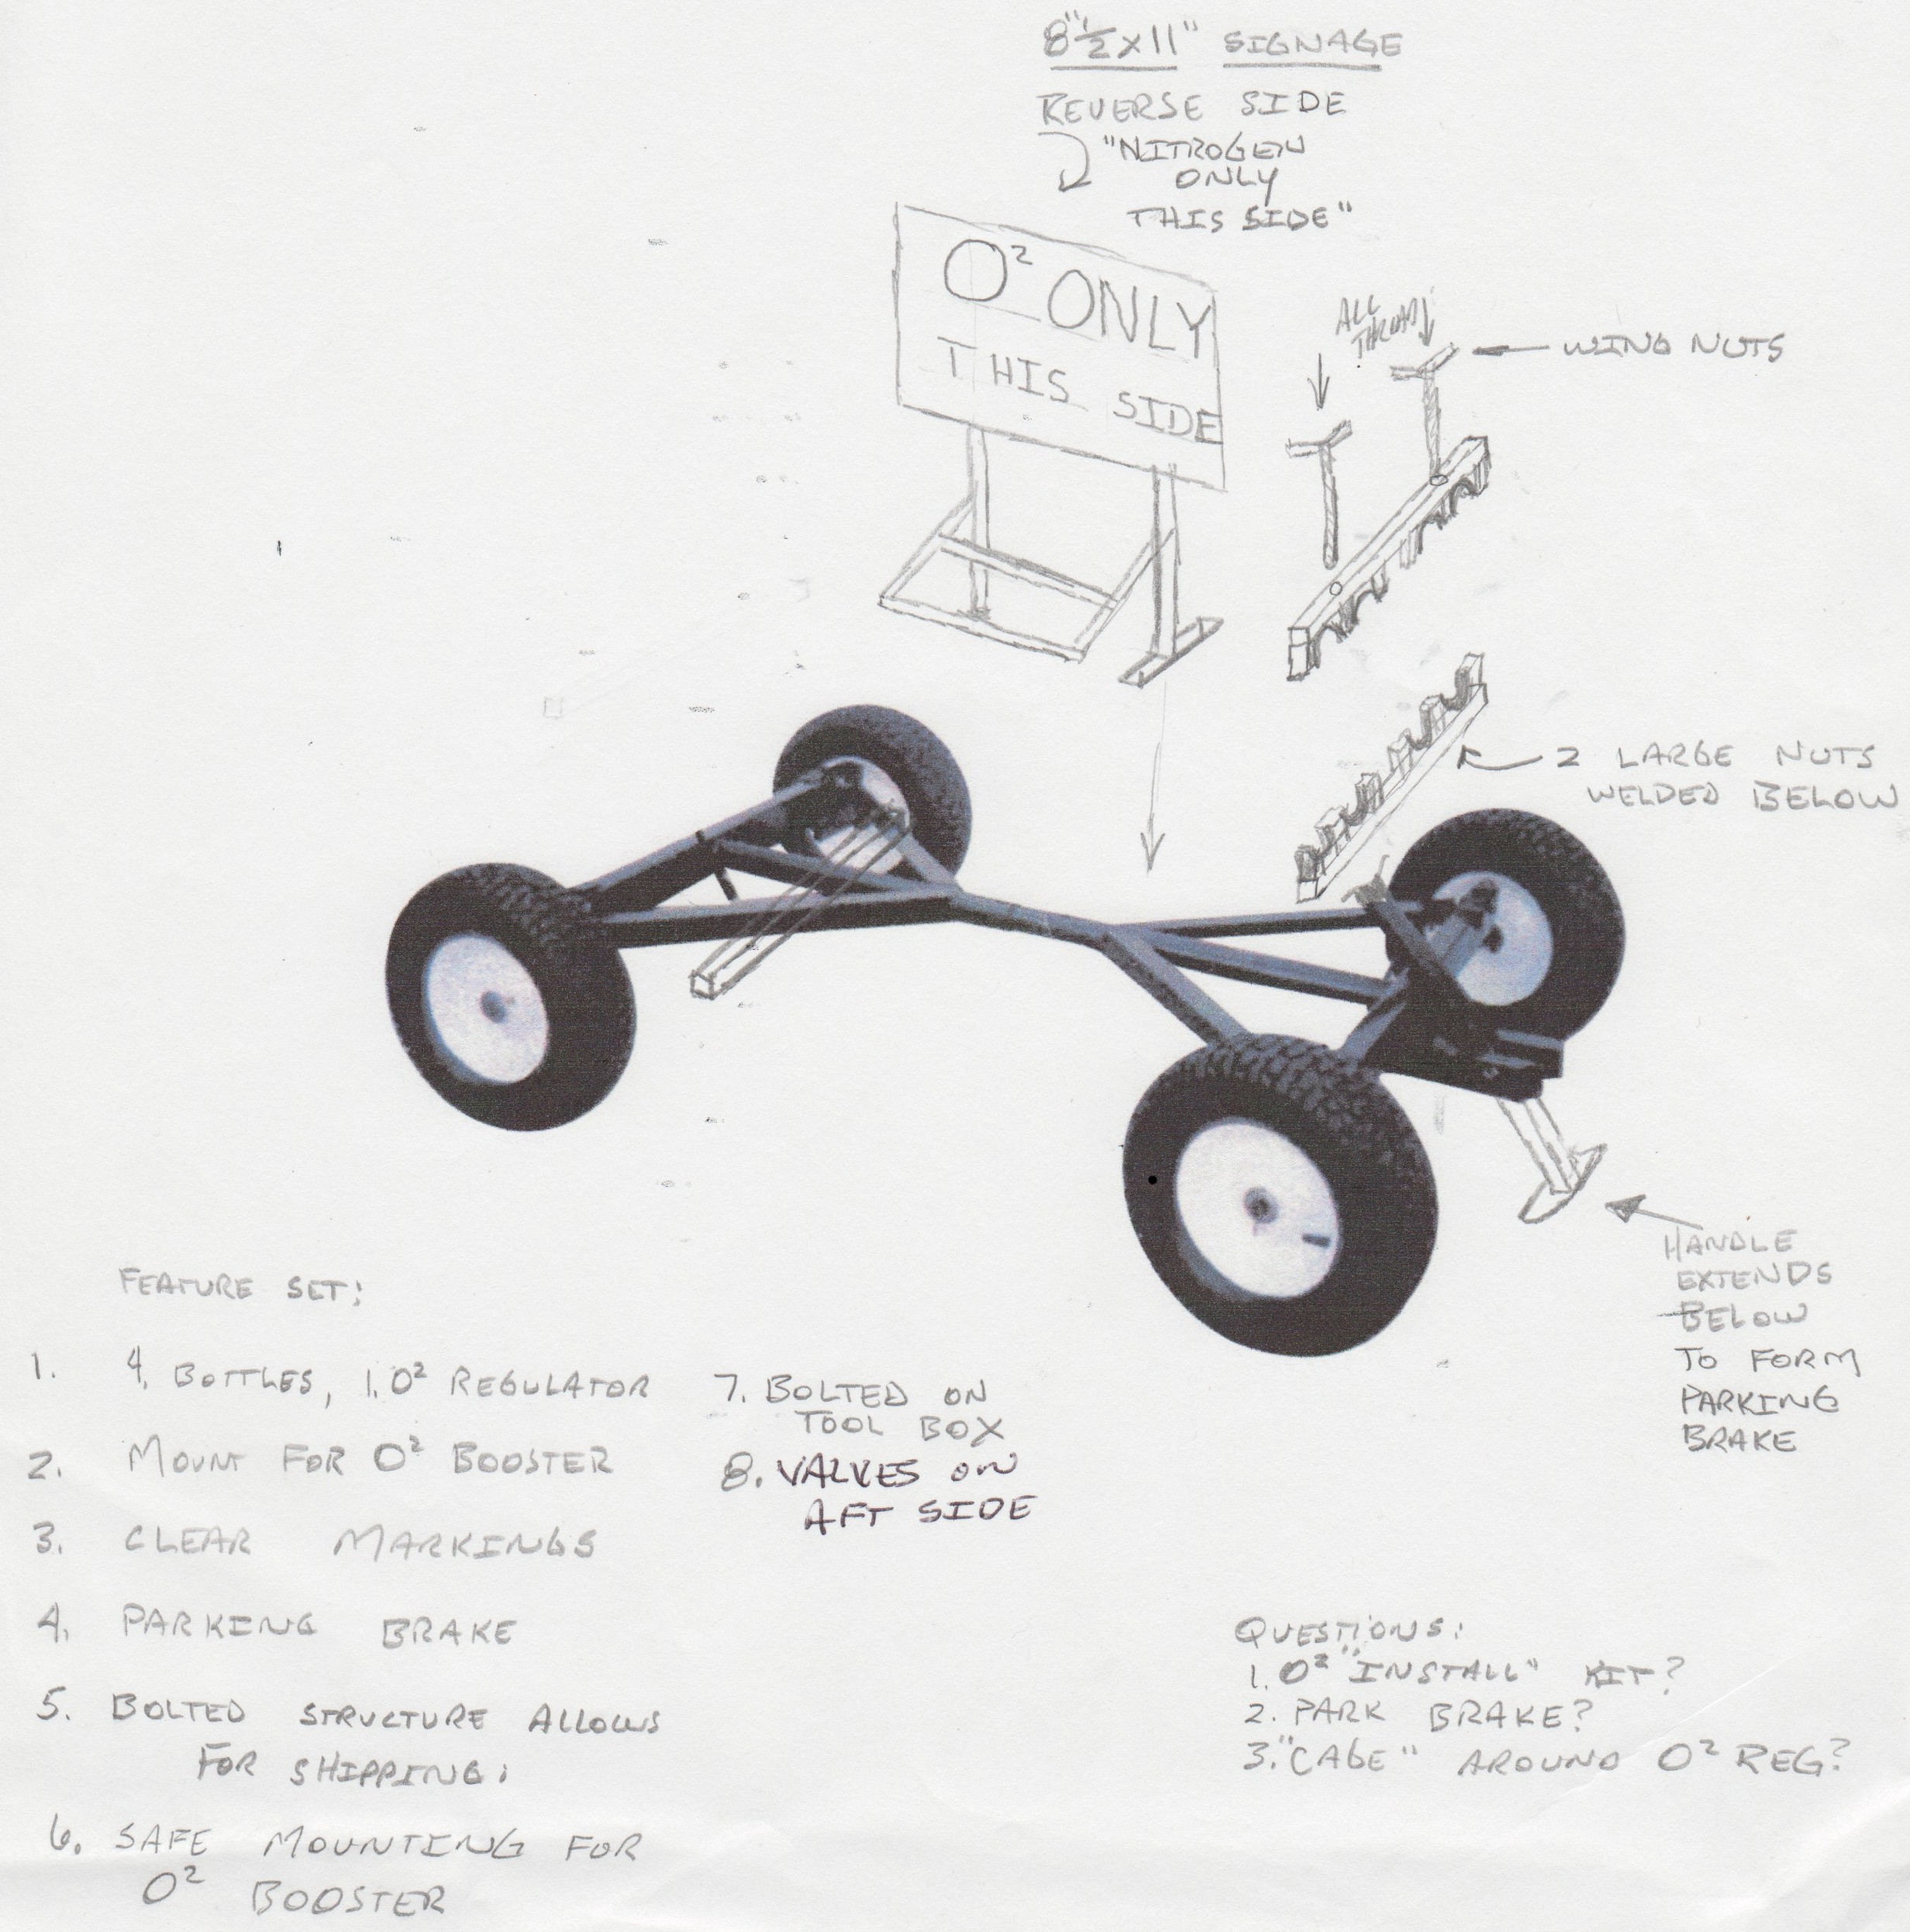 8"½ x 11" SIGNAGE
REVERSE SIDE
"NITROGEN
ONLY
THIS SIDE"
O² ONLY
THIS SIDE
ALL
THREAD
WING NUTS
2 LARGE NUTS
WELDED BELOW
HANDLE
EXTENDS
BELOW
TO FORM
PARKING
BRAKE
FEATURE SET:
1. 4. BOTTLES, 1. O² REGULATOR
2. MOUNT FOR O² BOOSTER
3. CLEAR MARKINGS
4. PARKING BRAKE
5. BOLTED STRUCTURE ALLOWS
FOR SHIPPING.
6. SAFE MOUNTING FOR
O² BOOSTER
7. BOLTED ON
TOOL BOX
8. VALVES ON
AFT SIDE
QUESTIONS:
1. O² "INSTALL" KIT?
2. PARK BRAKE?
3. "CAGE" AROUND O² REG?